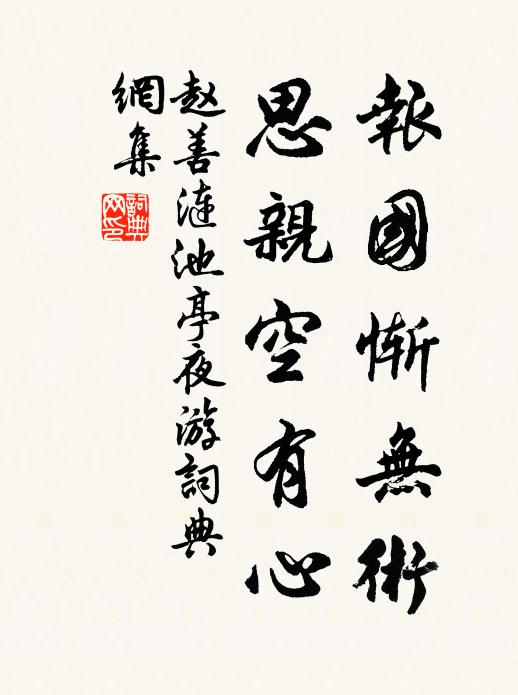 報國慚無術
思親空有心
赵善漣池亭夜游詞典
網集
詞典
网印